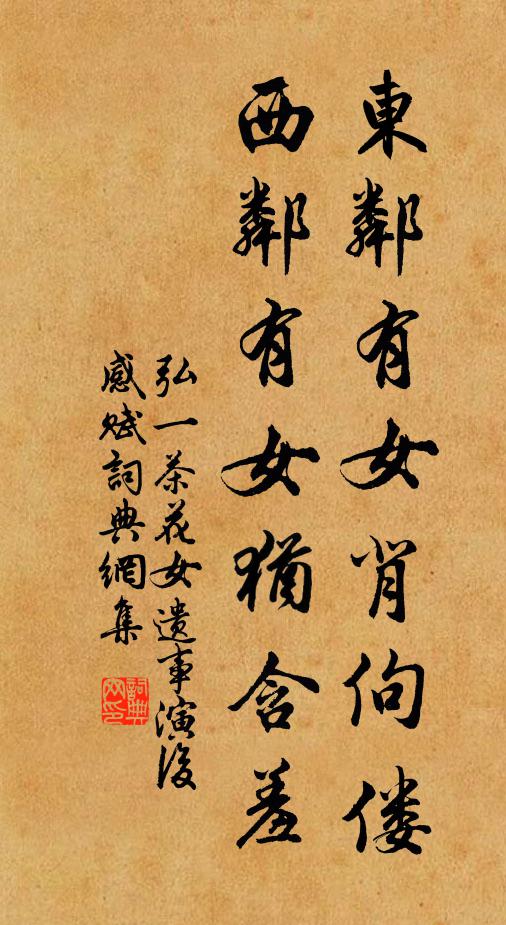 東鄰有女背佝僂
西鄰有女猶含羞
弘一茶花女遺事演後
感賦詞典網集
詞典
网印